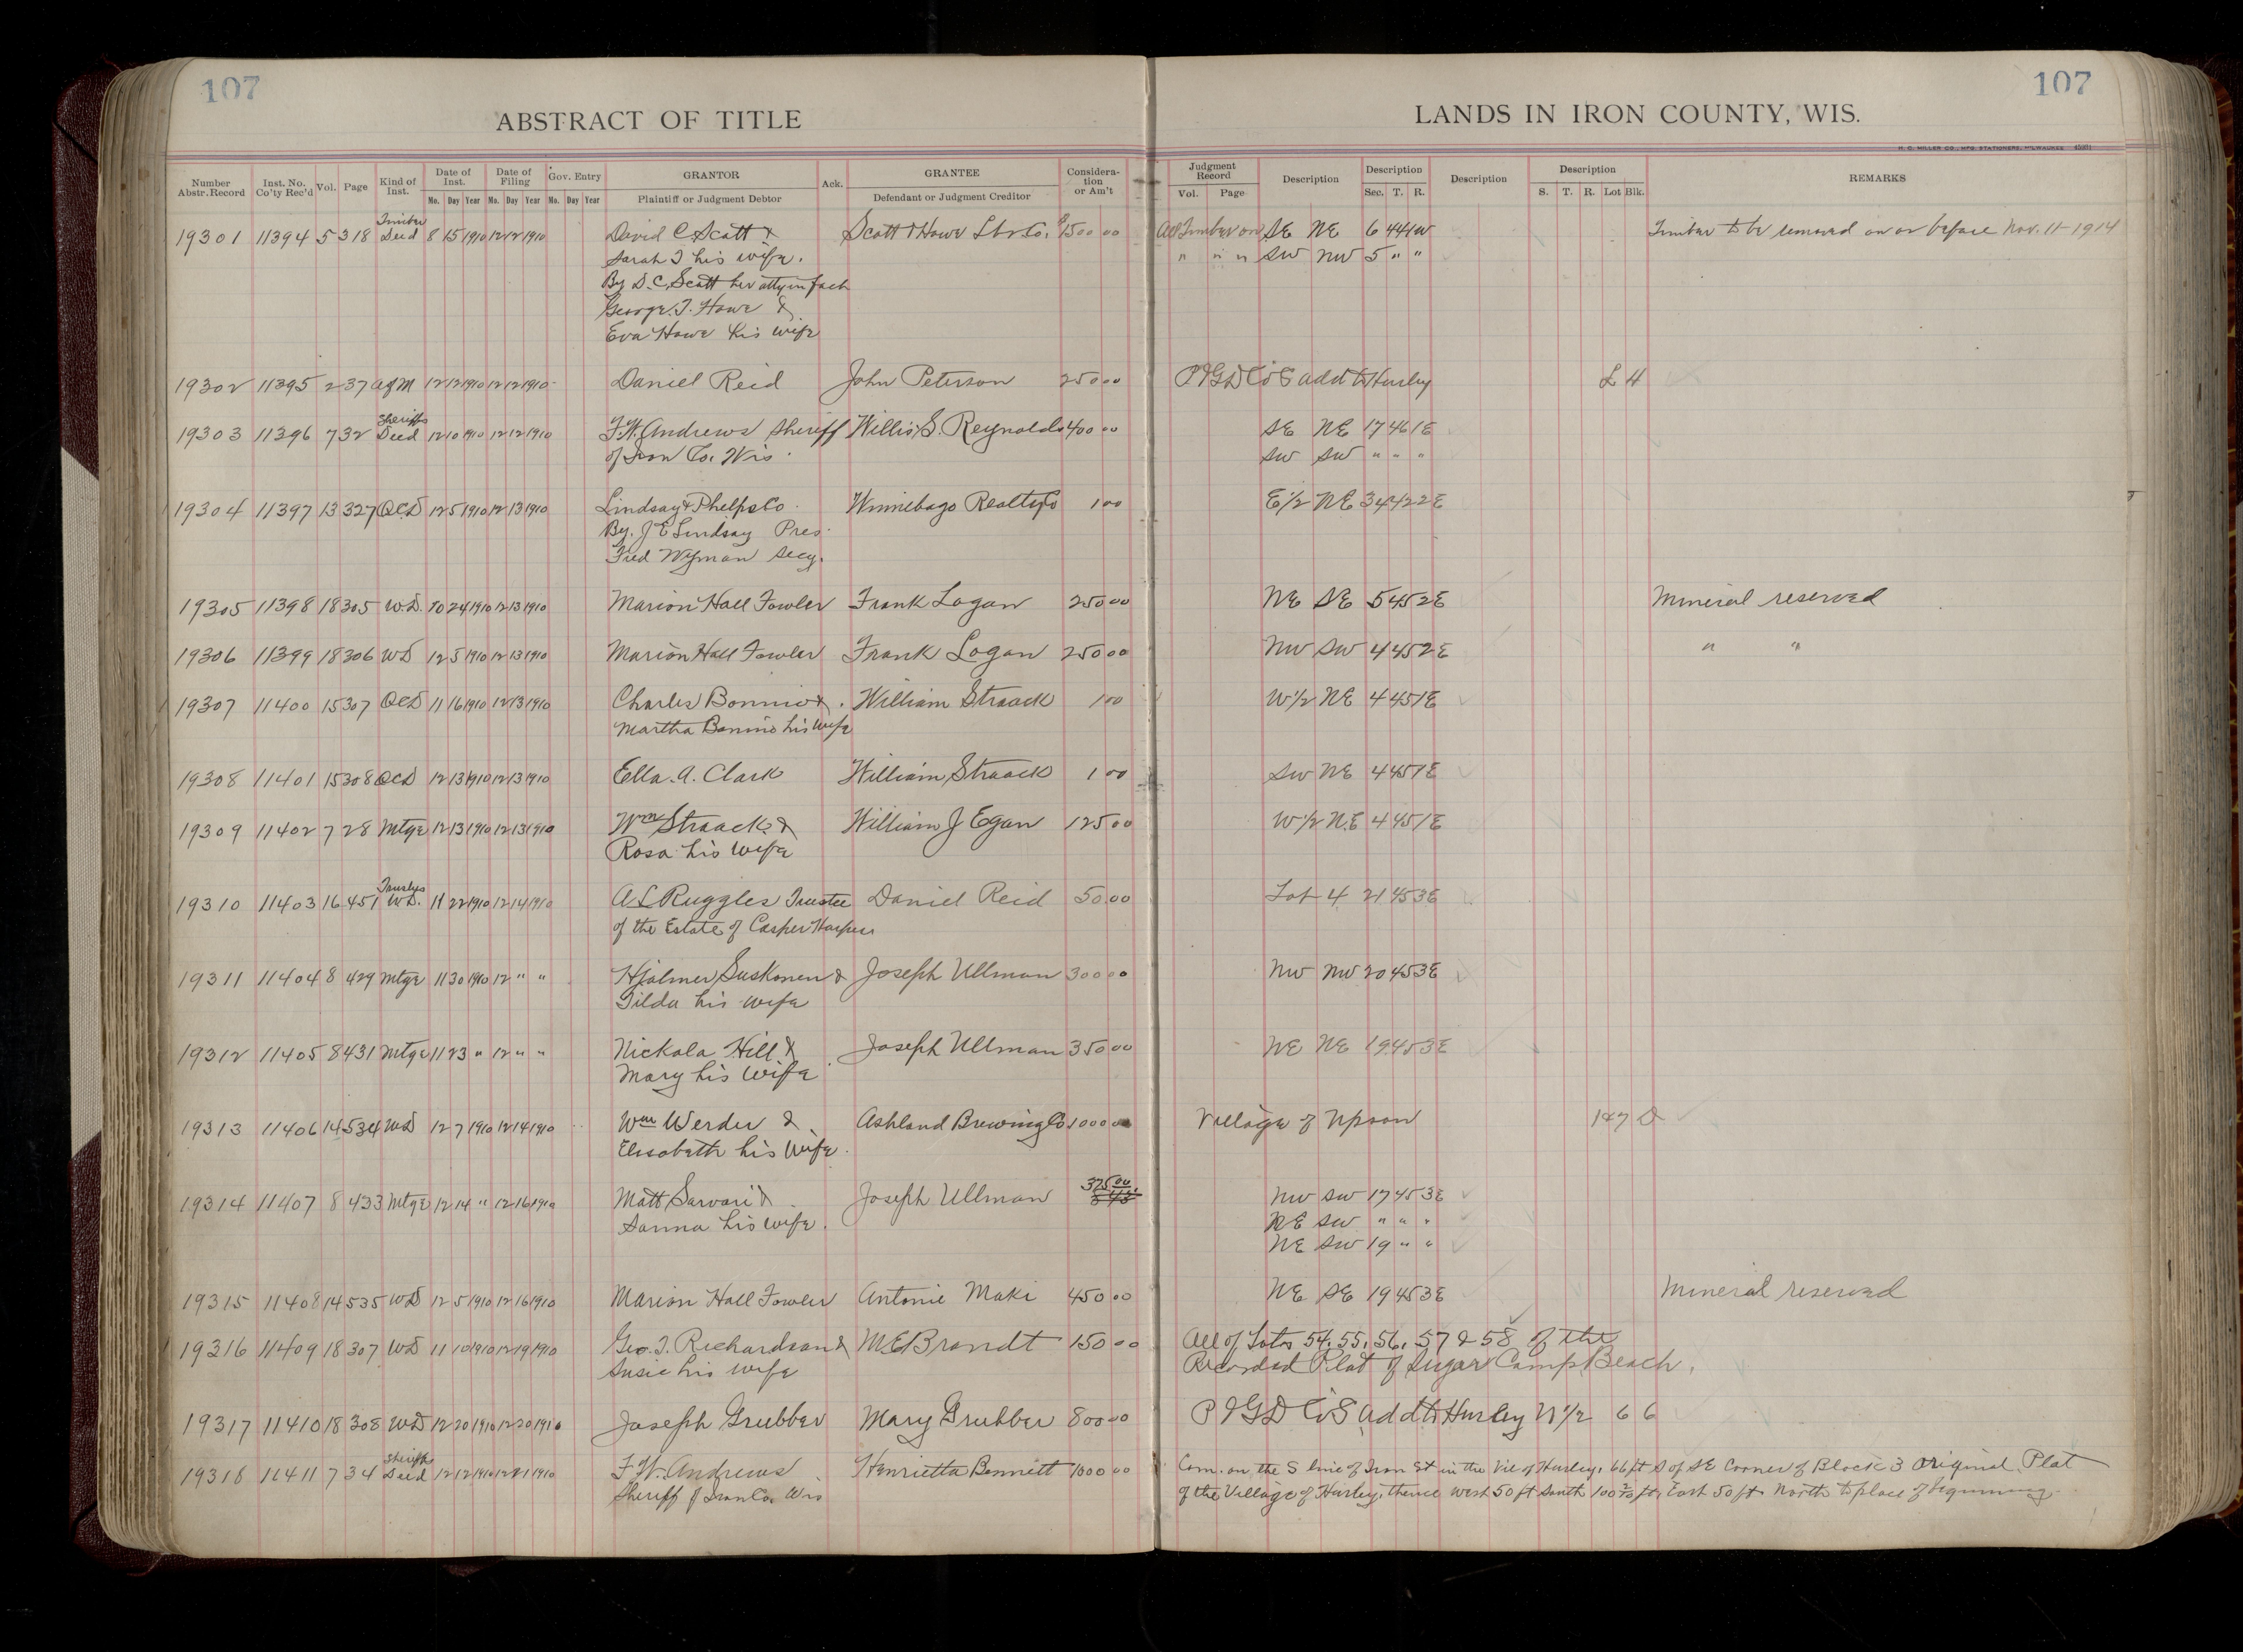 107
107
ABSTRACT OF TITLE
LANDS IN IRON COUNTY, WIS.
H. C. MILLER CO., MFG. STATIONERS, MILWAUKEE
Number Abstr. Record Inst. No. Co'ty Rec'd Vol. Page Kind of Inst. Date of Inst. Mo. Day Year Date of Filing Mo. Day Year Gov. Entry Mo. Day Year GRANTOR Plaintiff or Judgment Debtor Ack. GRANTEE Defendant or Judgment Creditor Consideration or Am't
Judgment Record Vol. Page Description Description Sec. T. R. Description Description S. T. R. Lot Blk. REMARKS
19301 11394 5 318 Timber Deed 8 15 1910 12 12 1910 David C. Scott & Scott & Howe Lbr Co. $1500 00 All Timber on SE NE 6 44 1W Timber to be removed on or before Nov. 11-1914
Sarah J his wife. " " " SW NW 5 " "
By D. C. Scott her atty in fact
George. T. Howe &
Eva Howe his wife
19302 11395 2 37 agm 12 12 1910 12 12 1910 Daniel Reid John Peterson 250 00 P I G D Co's add to Hurley L 4
19303 11396 7 32 Sheriffs Deed 12 10 1910 12 12 1910 F. W. Andrews Sheriff Willis S. Reynolds 400 00 SE NE 17 46 1E
of Iron Co. Wis. SW SW " " "
19304 11397 13 327 QCD 12 5 1910 12 13 1910 Lindsay & Phelps Co. Winnebago Realty Co 1 00 E 1/2 NE 34 42 2E
By. J E Lindsay Pres.
Fred Wyman Secy.
19305 11398 18 305 W.D. 10 24 1910 12 13 1910 Marion Hall Fowler Frank Logan 250 00 NE SE 5 45 2E Mineral reserved
19306 11399 18 306 WD 12 5 1910 12 13 1910 Marion Hall Fowler Frank Logan 250 00 NW SW 4 45 2E " "
19307 11400 15 307 QCD 11 16 1910 12 13 1910 Charles Bonnio & William Straack 1 00 W 1/2 NE 4 45 1E
Martha Bonnio his wife
19308 11401 15 308 QCD 12 13 1910 12 13 1910 Ella. A. Clark William Straack 1 00 SW NE 4 45 1E
19309 11402 7 28 Mtge 12 13 1910 12 13 1910 Wm Straack & William J Egan 125 00 W 1/2 N.E 4 45 1E
Rosa his wife
19310 11403 16 451 W.D. 11 22 1910 12 14 1910 A L Ruggles Trustee Daniel Reid 50 00 Lot 4 21 45 3E
of the Estate of Casper
19311 11404 8 429 Mtge 11 30 1910 12 " " Hjalmer Suskonen & Joseph Ullman 300 00 NW NW 20 45 3E
Tilda his wife
19312 11405 8 431 Mtge 11 23 " 12 " " Nickola Hill & Joseph Ullman 350 00 NE NE 19 45 3E
Mary his wife
19313 11406 14 534 WD 12 7 1910 12 14 1910 Wm Werder & Ashland Brewing Co 1000 00 Village of Upson 147 D
Elisabeth his wife.
19314 11407 8 433 Mtge 12 14 " 12 16 1910 Matt Sarvari & Joseph Ullman 375.00 NW SW 17 45 3E
Sanna his wife. NE SW " " "
NE SW 19 " "
19315 11408 14 535 WD 12 5 1910 12 16 1910 Marion Hall Fowler Antonie Maki 450 00 NE SE 19 45 3E Mineral reserved
19316 11409 18 307 WD 11 10 1910 12 19 1910 Geo. T. Richardson & M E Brandt 150 00 All of Lots 54, 55, 56, 57 & 58 of the
Susie his wife Recorded Plat of Sugar Camp Beach.
19317 11410 18 308 WD 12 20 1910 12 20 1910 Joseph Grubber Mary Grubber 800 00 P I G D Co's add to Hurley N 1/2 6 6
19318 11411 7 34 Sheriffs Deed 12 12 1910 12 21 1910 F. W. Andrews Henrietta Bennett 1000 00 Com. on the S line of Iron St in the Vil of Hurley, 66 ft S of SE Corner of Block 3 Original Plat
Sheriff of Iron Co. Wis of the Village of Hurley, thence West 50 ft South 100 ft, East 50 ft North to place of beginning